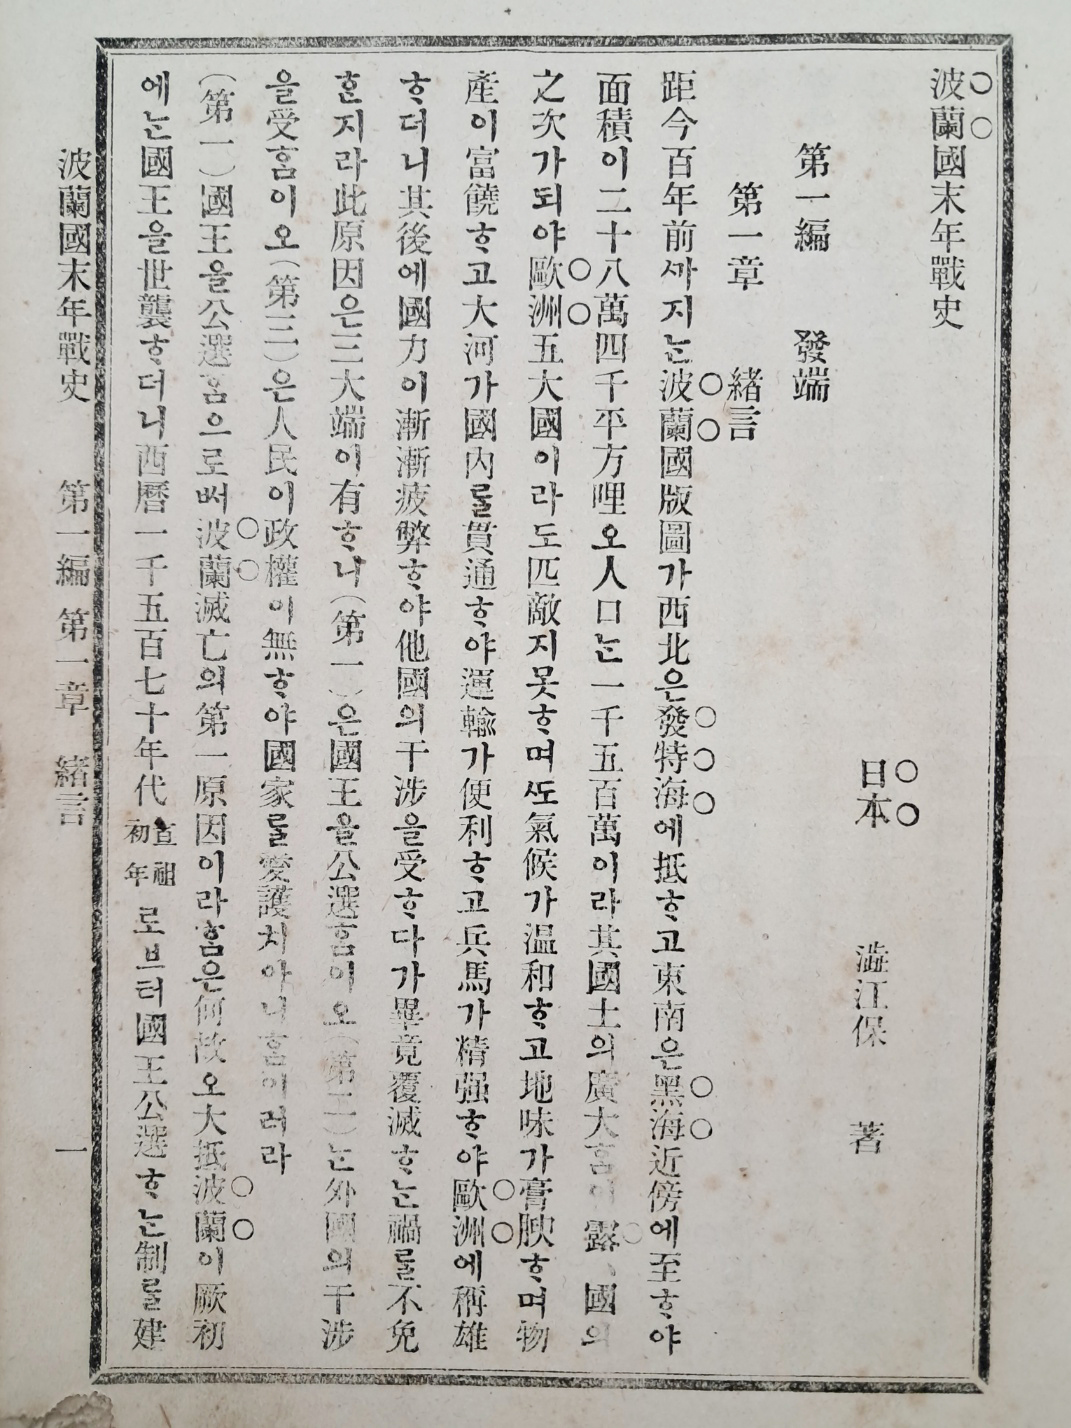 波蘭國末年戰史
日本 澁江保 著
第一編 發端
第一章 緖言
距今百年前ᄭᅡ지ᄂᆞᆫ波蘭國版圖가西北은發特海에抵ᄒᆞ고東南은黑海近傍에至ᄒᆞ야
面積이二十八萬四千平方哩오人口ᄂᆞᆫ一千五百萬이라其國土의廣大ᄒᆞᆷ이露國의
之次가되야歐洲五大國이라도匹敵지못ᄒᆞ며ᄯᅩ氣候가温和ᄒᆞ고地味가膏腴ᄒᆞ며物
產이富饒ᄒᆞ고大河가國內ᄅᆞᆯ貫通ᄒᆞ야運輸가便利ᄒᆞ고兵馬가精强ᄒᆞ야歐洲에稱雄
ᄒᆞ더니其後에國力이漸漸疲弊ᄒᆞ야他國의干涉을受ᄒᆞ다가畢竟覆滅ᄒᆞᄂᆞᆫ禍ᄅᆞᆯ不免
ᄒᆞᆫ지라此原因은三大端이有ᄒᆞ니(第一)은國王을公選ᄒᆞᆷ이오(第二)ᄂᆞᆫ外國의干涉
을受ᄒᆞᆷ이오(第三)은人民이政權이無ᄒᆞ야國家ᄅᆞᆯ愛護치아니ᄒᆞᆷ이러라
(第一)國王을公選ᄒᆞᆷ으로ᄡᅥ波蘭滅亡의第一原因이라ᄒᆞᆷ은何故오大抵波蘭이厥初
에ᄂᆞᆫ國王을世襲ᄒᆞ더니西曆一千五百七十年代宣祖初年로브터國王公選ᄒᆞᄂᆞᆫ制ᄅᆞᆯ建
波蘭國末年戰史 第一編 第一章 緖言 一